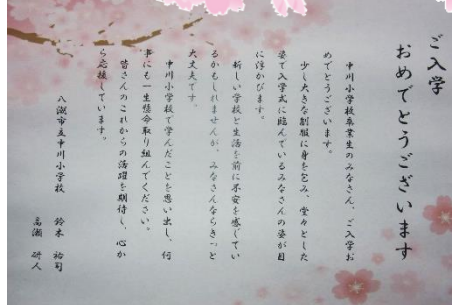 ご入学
おめでとうございます
中川小学校卒業生のみなさん、ご入学お
めでとうございます。
少し大きな制服に身を包み、堂々とした
姿で入学式に臨んでいるみなさんの姿が目
に浮かびます。
新しい学校と生活を前に不安を感じてい
るかもしれませんが、みなさんならきっと
大丈夫です。
中川小学校で学んだことを思い出し、何
事にも一生懸命取り組んでください。
皆さんのこれからの活躍を期待し、心か
ら応援しています。
八潮市立中川小学校 鈴木 裕司
高瀬 研人